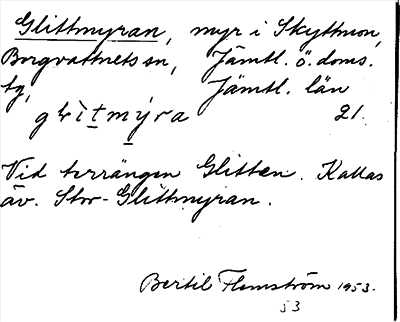 Glittmyran, myr i Skyttmon,
Borgvattnets sn, Jämtl. ö. doms.
tg, Jämtl. län
21.
Vid terrängen Glitten. Kallas
äv. Stor-Glittmyran.
Bertil Flemström 1953.
53